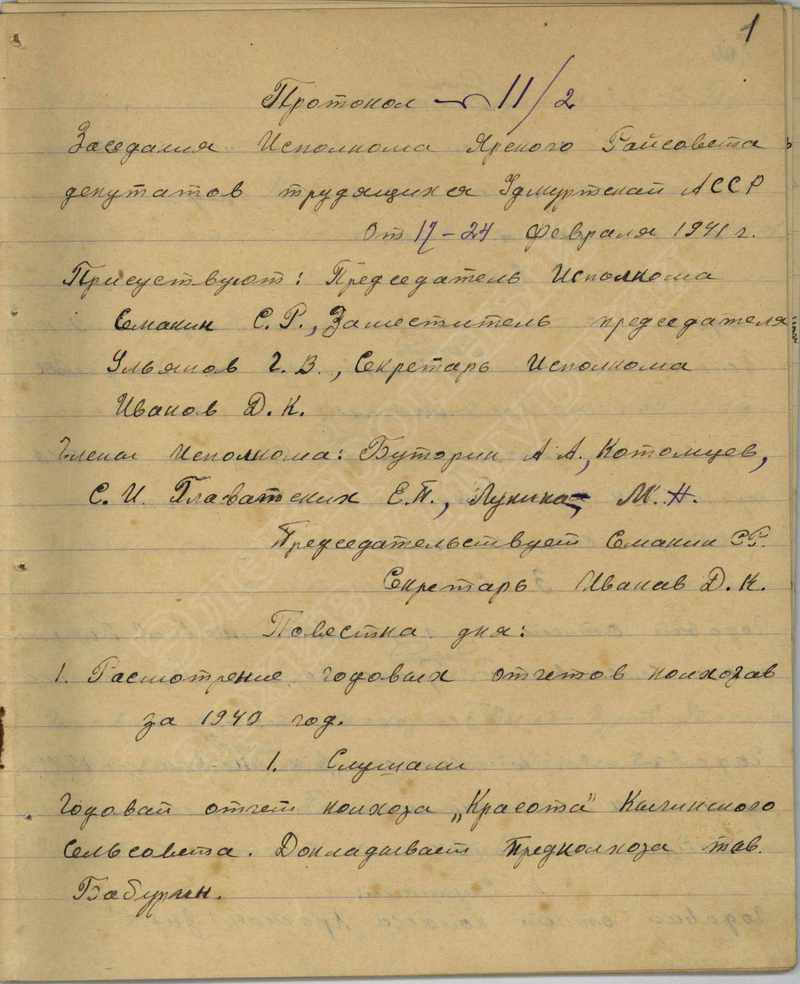 1
Протокол № 11/2
Заседания Исполкома Ярского Райсовета
депутатов трудящихся Удмуртской АССР
от 17-24 февраля 1941 г.
Присуствуют: Председатель Исполкома
Семакин С.Р., Заместитель председателя
Ульянов Г.В., Секретарь Исполкома
Иванов Д.К.
Члены исполкома: Буторин А А., Котомцев,
С.И. Главатских Е.П., Лунина, М.Н.
Председательствует Семакин С.Р.
Секретарь Иванов Д.К.
Повестка дня:
1. Расмотрение годовых отчетов колхозов
за 1940 год.
1. Слушали
Годовой отчет колхоза „Красота" Кычинского
Сельсовета. Докладывает Предколхоза тов.
Бабурин.